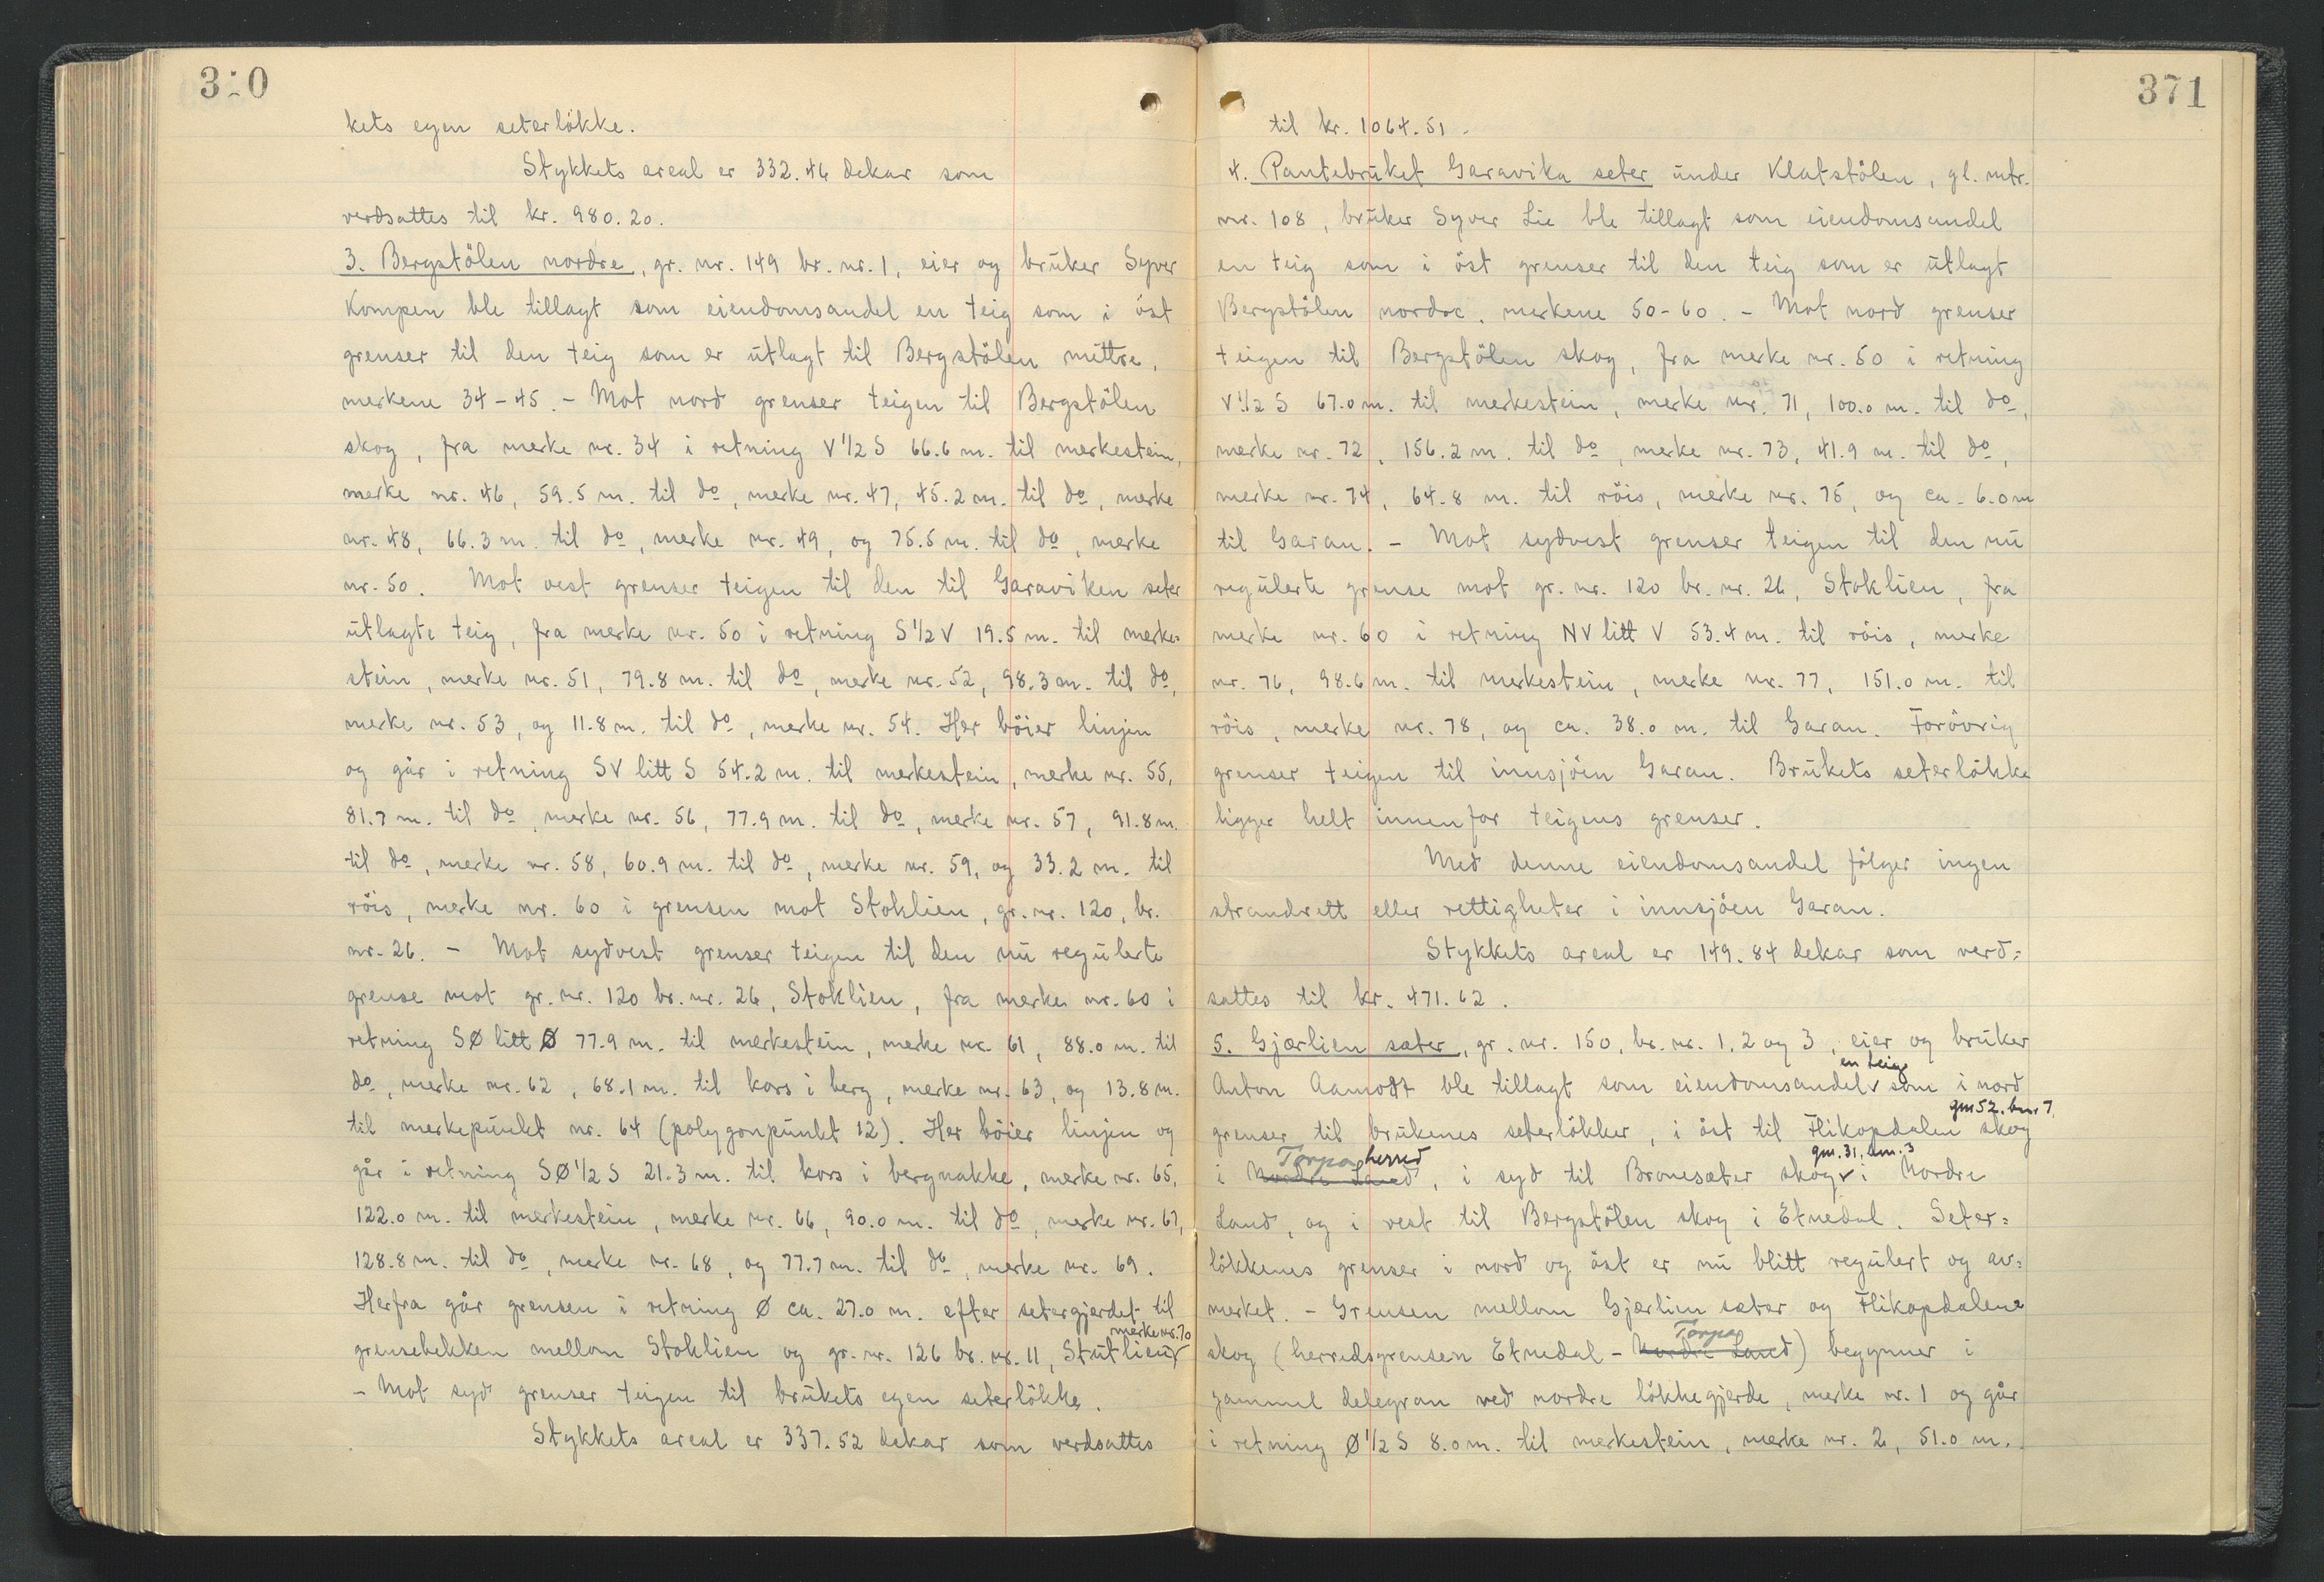 370
kets egen seterlökke.
Stykkets areal er 332.46 dekar som
verdsattes til kr. 980.20.
3. Bergstölen nordre, gr. nr. 149 br. nr. 1, eier og brüker Syver
Kompen ble tillagt som eiendomsandel en teig som i öst
grenser til den teig som er ütlagt til Bergstölen mittre,
merkene 34-45. - Mot nord grenser teigen til Bergstölen
skog, fra merke nr. 34 i retning V 1/2 S 66.6 m. til merkestein,
merke nr. 46, 59.5 m. til do, merke nr. 47, 45.2 m. til do, merke
nr. 48, 66.3 m. til do, merke nr. 49, og 75.5 m. til do, merke
nr. 50. Mot vest grenser teigen til den til Garaviken seter
ütlagte teig, fra merke nr. 50 i retning S 1/2 V 19.5 m. til merke=
stein, merke nr. 51, 79.8 m. til do, merke nr. 52, 98.3 m. til do,
merke nr. 53, og 11.8 m. til do, merke nr. 54. Her böier linjen
og går i retning SV litt S 54.2 m. til merkestein, merke nr. 55,
81.7 m. til do, merke nr. 56, 77.9 m. til do, merke nr. 57, 91.8 m.
til do, merke nr. 58, 60.9 m. til do, merke nr. 59, og 33.2 m. til
röis, merke nr. 60 i grensen mot Stoklien, gr. nr. 120, br.
nr. 26. - Mot sydvest grenser teigen til den nü regülerte
grense mot gr. nr. 120 br. nr. 26, Stoklien, fra merke nr. 60 i
retning SØ litt Ø 77.9 m. til merkestein, merke nr. 61, 88.0 m. til
do, merke nr. 62, 68.1 m. til kors i berg, merke nr. 63, og 13.8 m.
til merkepünkt nr. 64 (polygonpünkt 12). Her böier linjen og
går i retning SØ 1/2 S 21.3 m. til kors i bergnakke, merke nr. 65,
122.0 m. til merkestein, merke nr. 66, 90.0 m. til do, merke nr. 67,
128.8 m. til do, merke nr. 68, og 77.7 m. til do, merke nr. 69.
Herfra går grensen i retning Ø ca. 27.0 m. efter setergjerdet til
merke nr. 70
grensebekken mellom Stoklien og gr. nr. 126 br. nr. 11, Stütlien
- Mot syd grenser teigen til brükets egen seterlökke.
Stykkets areal er 337.52 dekar som verdsattes
371
til kr. 1064.51.
4. Pantebrüket Garavika seter ünder Klatstölen, gl. mtr.
nr. 108, brüker Syver Lie ble tillagt som eiendomsandel
en teig som i öst grenser til den teig som er ütlagt
Bergstölen nordre, merkene 50-60. - Mot nord grenser
teigen til Bergstölen skog, fra merke nr. 50 i retning
V 1/2 S 67.0 m. til merkestein, merke nr. 71, 100.0 m. til do,
merke nr. 72, 156.2 m. til do, merke nr. 73, 41.9 m. til do,
merke nr. 74, 64.8 m. til röis, merke nr. 75, og ca. 6.0 m
til Garan. - Mot sydvest grenser teigen til den nü
regülerte grense mot gr. nr. 120 br. nr. 26, Stoklien, fra
merke nr. 60 i retning NV litt V 53.4 m. til röis, merke
nr. 76, 98.6 m. til merkestein, merke nr. 77, 151.0 m. til
röis, merke nr. 78, og ca. 38.0 m. til Garan. Forövrig
grenser teigen til innsjöen Garan. Brükets seterlökke
ligger helt innenfor teigens grenser.
Med denne eiendomsandel fölger ingen
strandrett eller rettigheter i innsjöen Garan.
Stykkets areal er 149.84 dekar som verd=
sattes til kr. 471.62.
5. Gjærlien sæter, gr. nr. 150, br. nr. 1, 2 og 3, eier og brüker
en teig
Anton Aamodt ble tillagt som eiendomsandel som i nord
gnr 52. bnr 7
grenser til brükenes seterlökker, i öst til Flikopdalen skog
Torpa herred gnr. 31, bnr. 3
i Nordre Land, i syd til Bronesæter skog i Nordre
Land, og i vest til Bergstölen skog i Etnedal. Seter=
lökkenes grenser i nord og öst er nü blitt regülert og av=
merket. - Grensen mellom Gjærlien sæter og Flikopdalens
Torpa
skog (herredsgrensen Etnedal - Nordre Land) begynner i
gammel delegran ved nordre lökkegjerde, merke nr. 1 og går
i retning Ø 1/2 S 8.0 m. til merkestein, merke nr. 2, 51.0 m.